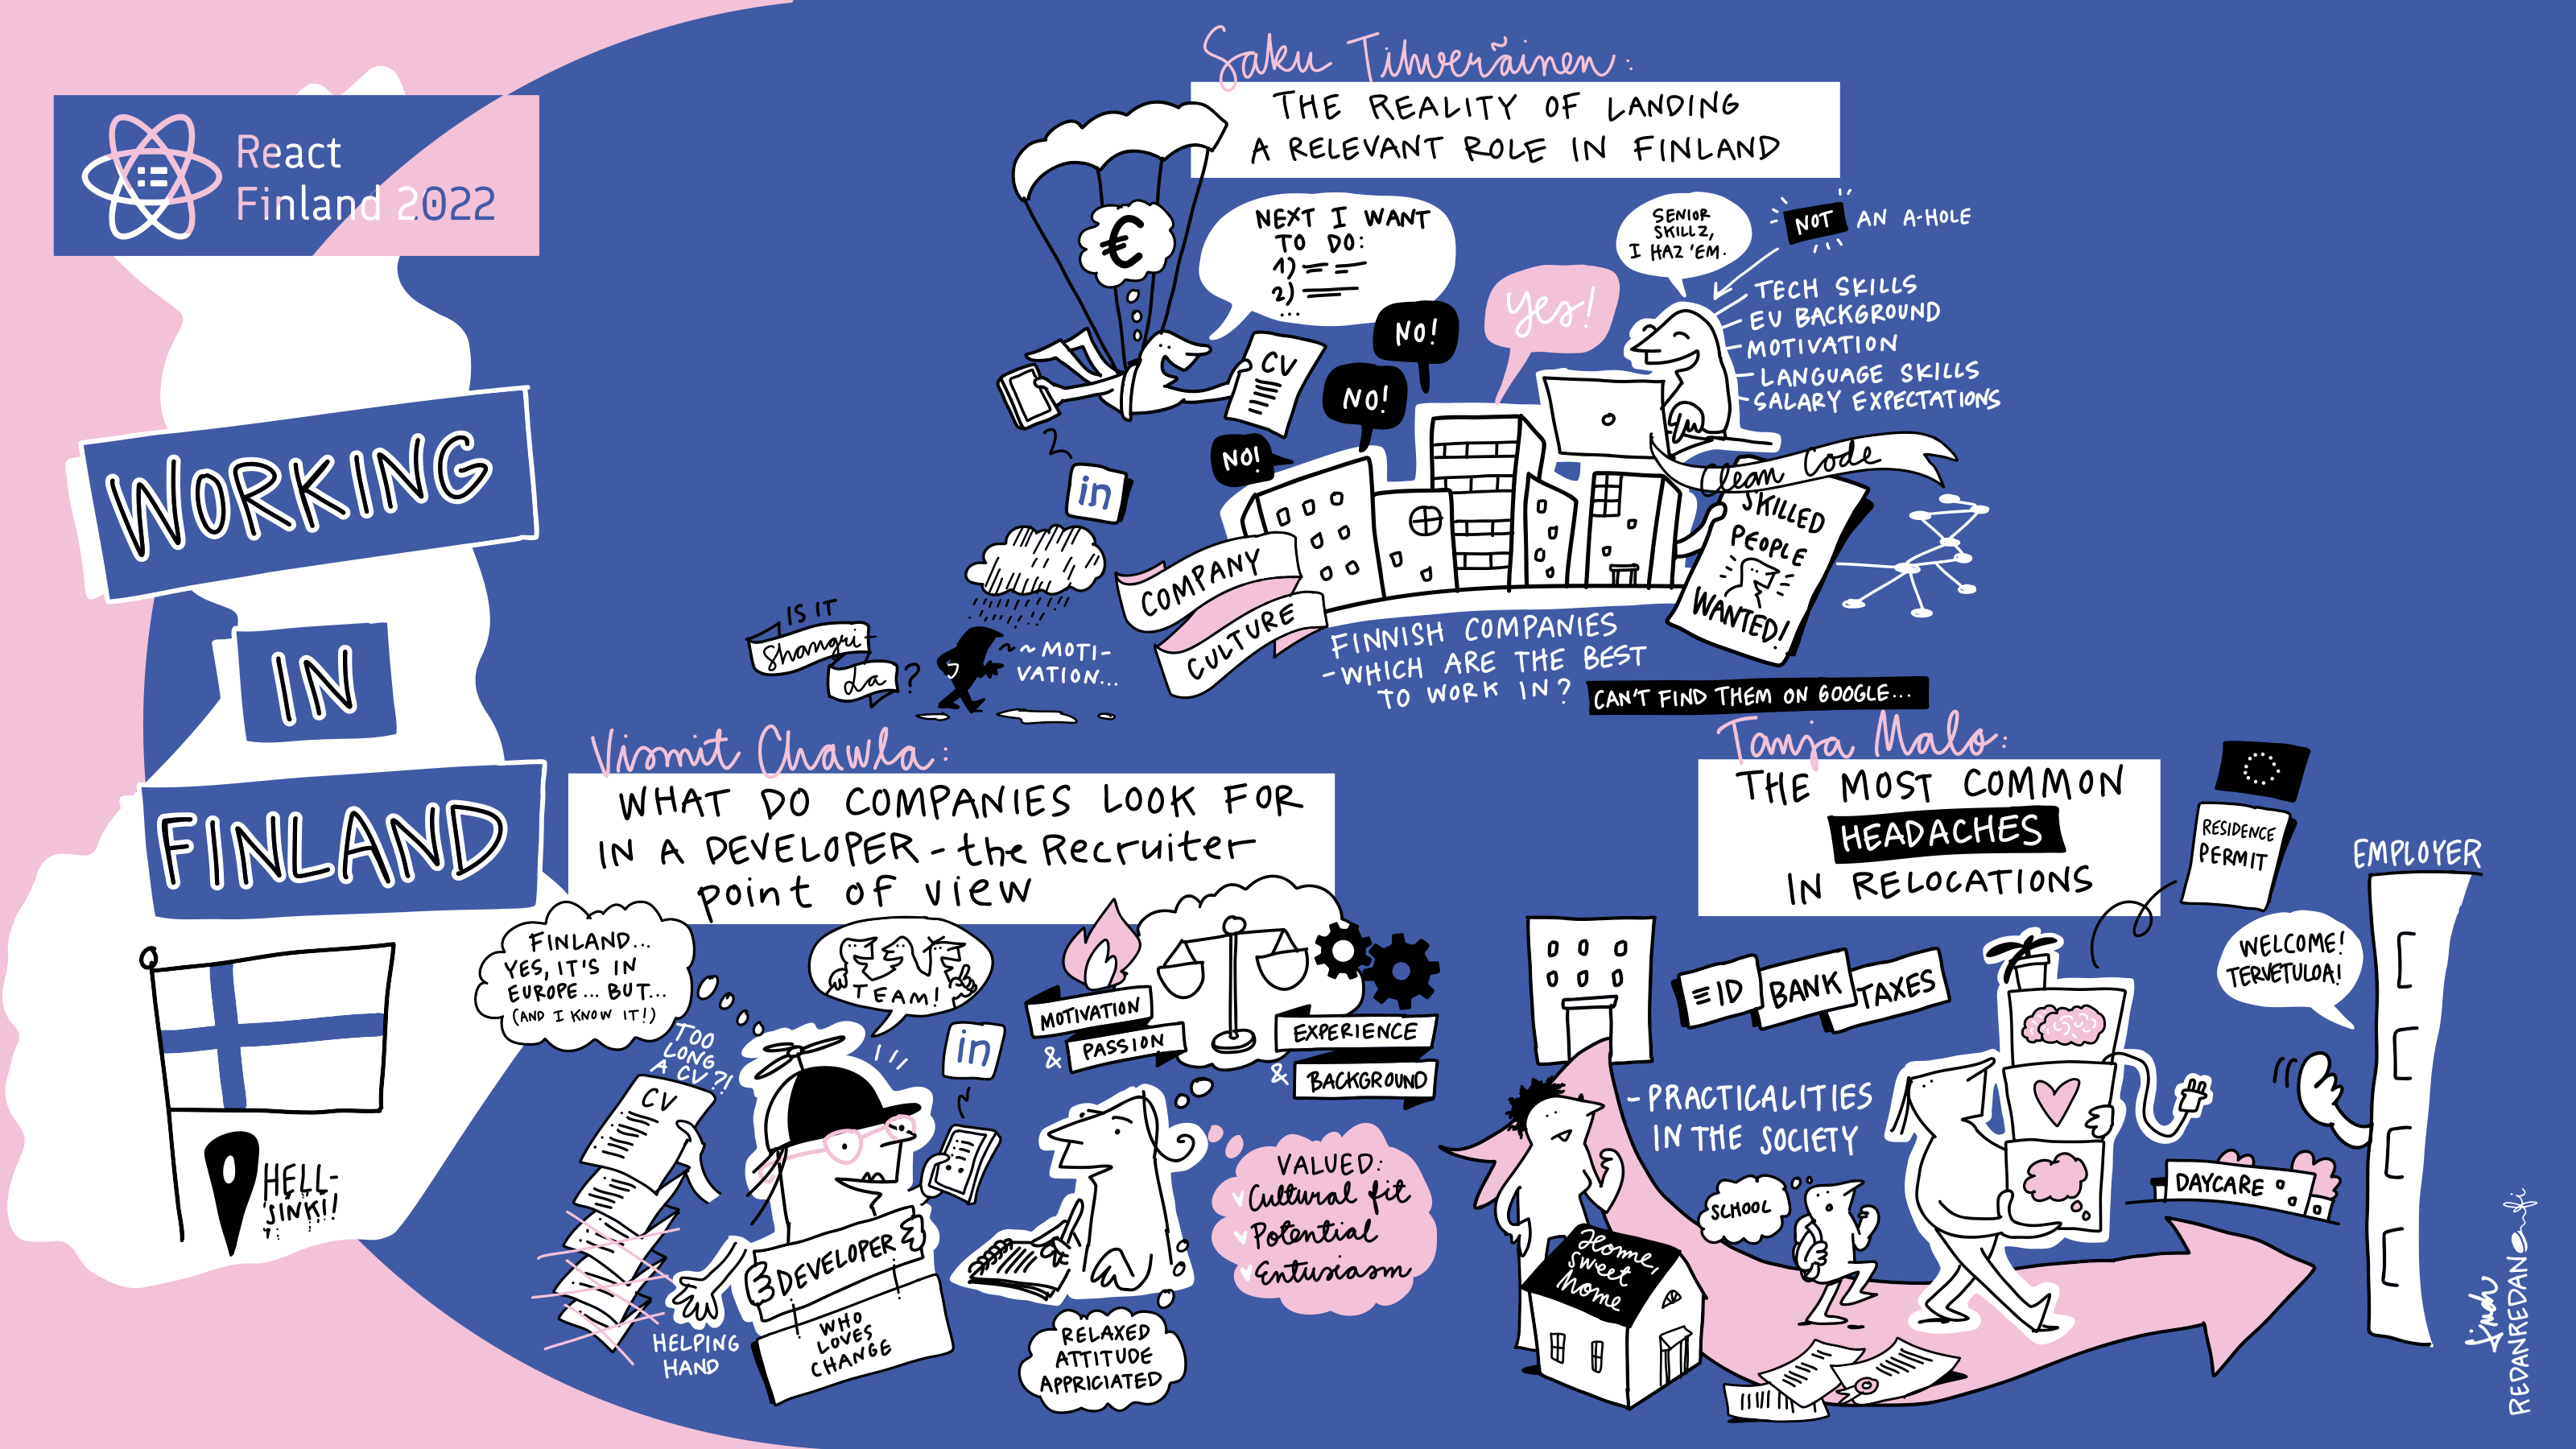 React
Finland 2022
WORKING
IN
FINLAND
HELL-
SINKI!
Saku Tihveräinen:
THE REALITY OF LANDING
A RELEVANT ROLE IN FINLAND
€
NEXT I WANT
TO DO:
1)
2)
...
CV
in
NO!
NO!
NO!
Yes!
SENIOR
SKILLZ,
I HAZ 'EM.
NOT AN A-HOLE
TECH SKILLS
EU BACKGROUND
- MOTIVATION
- LANGUAGE SKILLS
- SALARY EXPECTATIONS
Clean Code
SKILLED
PEOPLE
WANTED!
COMPANY
CULTURE
IS IT
Shangri-
La?
~~MOTI-
VATION...
FINNISH COMPANIES
-WHICH ARE THE BEST
TO WORK IN?
CAN'T FIND THEM ON GOOGLE...
Vismit Chawla:
WHAT DO COMPANIES LOOK FOR
IN A DEVELOPER - the Recruiter
point of view
FINLAND...
YES, IT'S IN
EUROPE... BUT...
(AND I KNOW IT!)
TOO
LONG
A CV?!
CV
TEAM!
in
DEVELOPER
WHO
LOVES
CHANGE
HELPING
HAND
MOTIVATION
& PASSION
EXPERIENCE
& BACKGROUND
VALUED:
Cultural fit
Potential
Entusiasm
RELAXED
ATTITUDE
APPRICIATED
Tanja Malo:
THE MOST COMMON
HEADACHES
IN RELOCATIONS
RESIDENCE
PERMIT
EMPLOYER
WELCOME!
TERVETULOA!
ID
BANK
TAXES
- PRACTICALITIES
IN THE SOCIETY
SCHOOL
DAYCARE
Home,
Sweet
Home
REDANREDAN